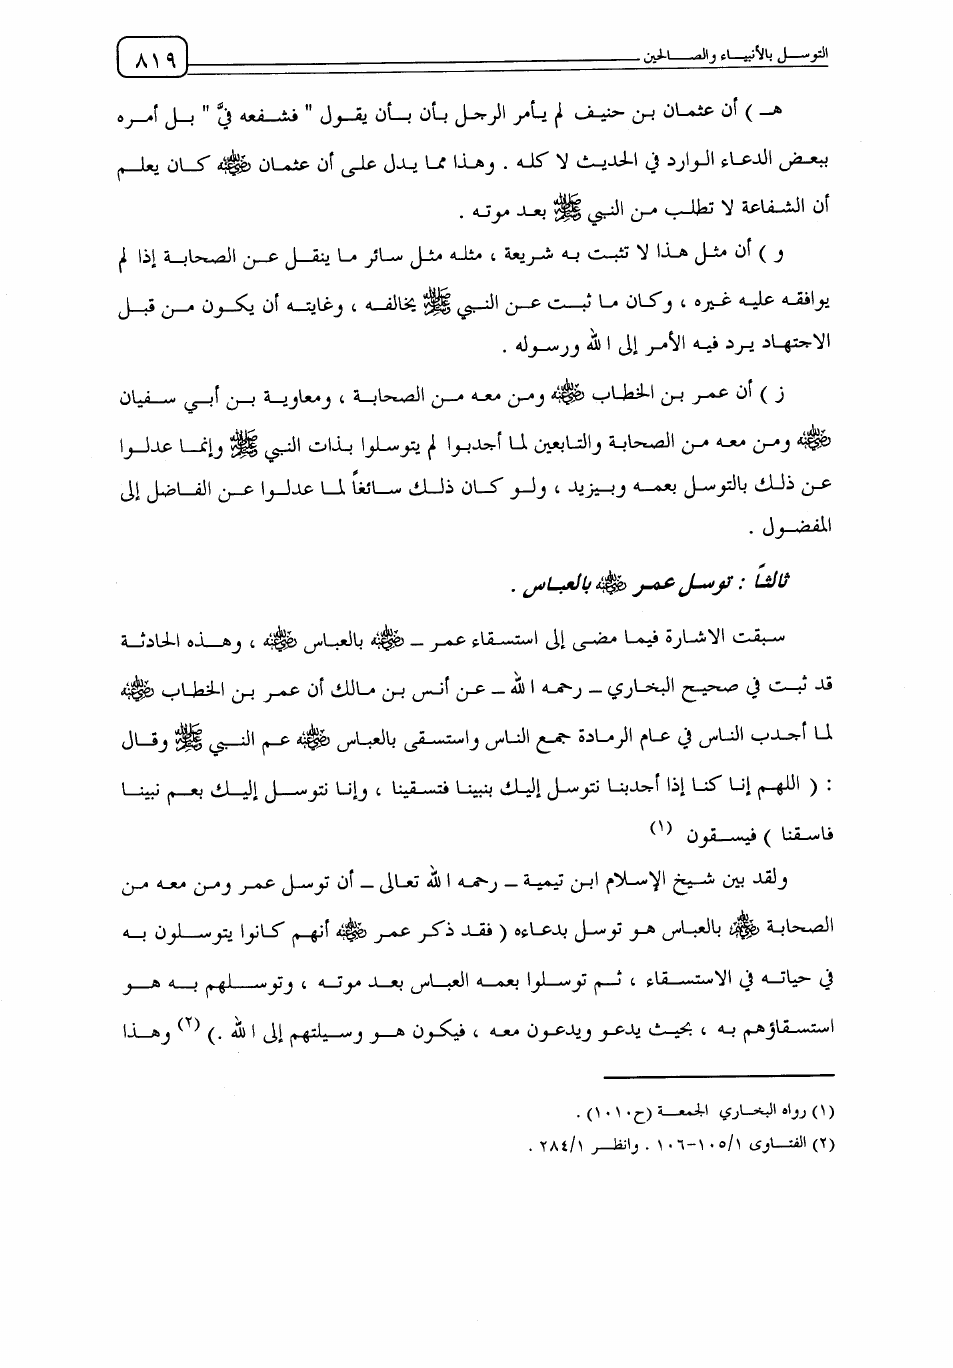 التوسل بالأنبياء والصالحين
٨١٩
هـ ) أن عثمان بن حنيف لم يأمر الرجل بأن بأن يقول " فشفعه فيَّ " بل أمره
ببعض الدعاء الوارد في الحديث لا كله . وهذا مما يدل على أن عثمان ﵁ كان يعلم
أن الشفاعة لا تطلب من النبي ﷺ بعد موته .
و ) أن مثل هذا لا تثبت به شريعة ، مثله مثل سائر ما ينقل عن الصحابة إذا لم
يوافقه عليه غيره ، وكان ما ثبت عن النبي ﷺ يخالفه ، وغايته أن يكون من قبل
الاجتهاد يرد فيه الأمر إلى الله ورسوله .
ز ) أن عمر بن الخطاب ﵁ ومن معه من الصحابة ، ومعاوية بن أبي سفيان
﵁ ومن معه من الصحابة والتابعين لما أجدبوا لم يتوسلوا بذات النبي ﷺ وإنما عدلوا
عن ذلك بالتوسل بعمه وبيزيد ، ولو كان ذلك سائغاً لما عدلوا عن الفاضل إلى
المفضول .
ثالثاً : توسل عمر ﵁ بالعباس .
سبقت الاشارة فيما مضى إلى استسقاء عمر – ﵁ بالعباس ﵁ ، وهذه الحادثة
قد ثبت في صحيح البخاري – رحمه الله – عن أنس بن مالك أن عمر بن الخطاب ﵁
لما أجدب الناس في عام الرمادة جمع الناس واستسقى بالعباس ﵁ عم النبي ﷺ وقال
: ( اللهم إنا كنا إذا أجدبنا نتوسل إليك بنبينا فتسقينا ، وإنا نتوسل إليك بعم نبينا
فاسقنا ) فيسقون (١)
ولقد بين شيخ الإسلام ابن تيمية – رحمه الله تعالى – أن توسل عمر ومن معه من
الصحابة ﵁ بالعباس هو توسل بدعاءه ( فقد ذكر عمر ﵁ أنهم كانوا يتوسلون به
في حياته في الاستسقاء ، ثم توسلوا بعمه العباس بعد موته ، وتوسلهم به هو
استسقاؤهم به ، بحيث يدعو ويدعون معه ، فيكون هو وسيلتهم إلى الله .) (٢) وهذا
(١) رواه البخاري الجمعة (ح١٠١٠) .
(٢) الفتاوى ١٠٥/١-١٠٦ . وانظر ٢٨٤/١ .